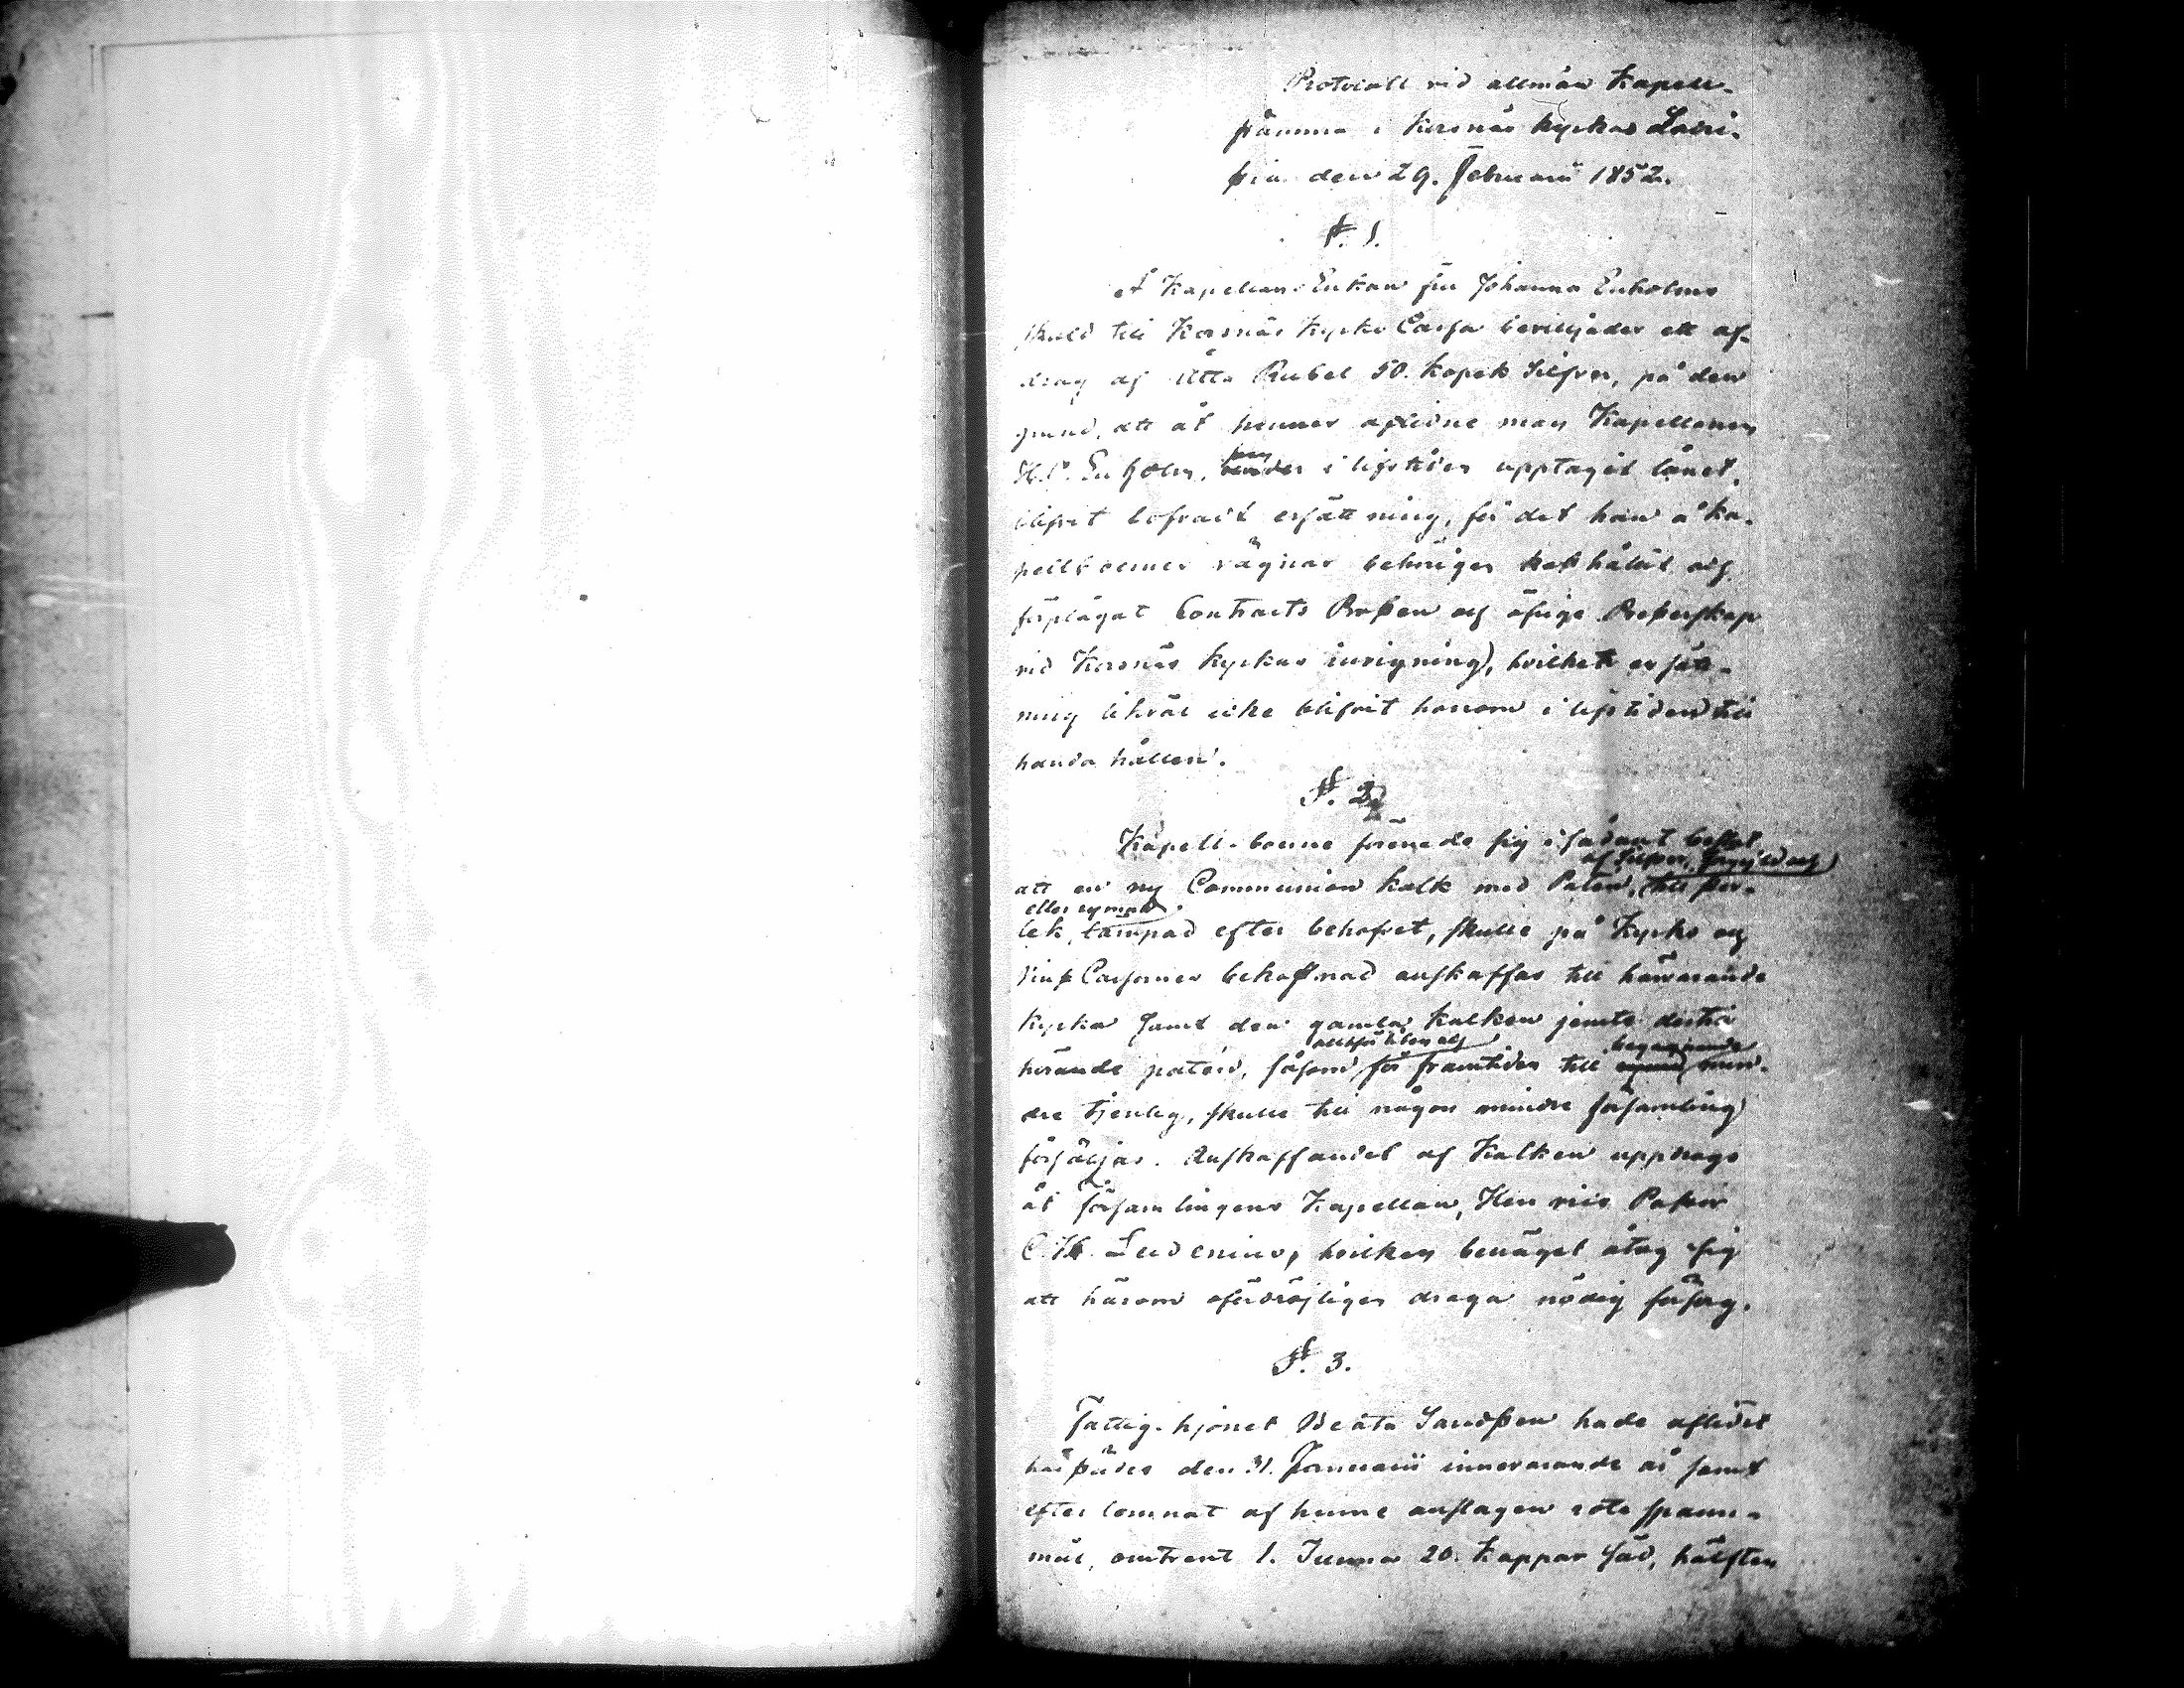 Protocoll vid allmän Kapell-
stämma i Korsnäs kyrkas Sacri-
stia den 29. Februarii 1852.
§. 1.
Å Kapellans Enkan fru Johanna Enholms
skuld till Korsnäs Kyrko Cassa beviljades ett af-
drag af Åtta Rubel 50. kopek Silfver, på den
grund, att åt hennes aflidne man Kapellanen
Enholm, som i lifstiden upptagit lånet,
blifvit lofvadt ersättning, för det han å ka-
pellboernes vägnar behörigen kosthållit och
förplägat Contracts Prosten och öfrige Presterskap
vid Korsnäs kyrkas invigning, hvilket ersätt-
ning likväl icke blifvit honom i lifstiden till
handa hållen.
§. 2.
Kapell-boerne förenade sig i sådant beslut
af Silfver, förgyld och
att en ny Communion kalk med Paten, till stor-
eller rymd
lek, lämpad efter behofvet, skulle på Kyrko och
Cassornes bekostnad anskaffas till härvarande
kyrka samt den gamla kalken jemte dertill
alltför liten och
hörande patén, såsom för framtiden till begagnande min-
dre tjenlig, skulle till någon mindre församling
försäljas. Anskaffandet af Kalken uppdrogs
åt Församlingens Kapellan, Herr vice Pastor
C. H. Ludenius, hvilken benäget åtog sig
att härom ofördröjligen draga nödig försorg.
§. 3.
Fattig-hjonet Beata Sandsten hade aflidit
härstädes den 31. Januarii innevarande år samt
efter lemnat af henne anslagen rote spann-
mål, omtrent 1. Tunna 20. Kappar Säd, hälften